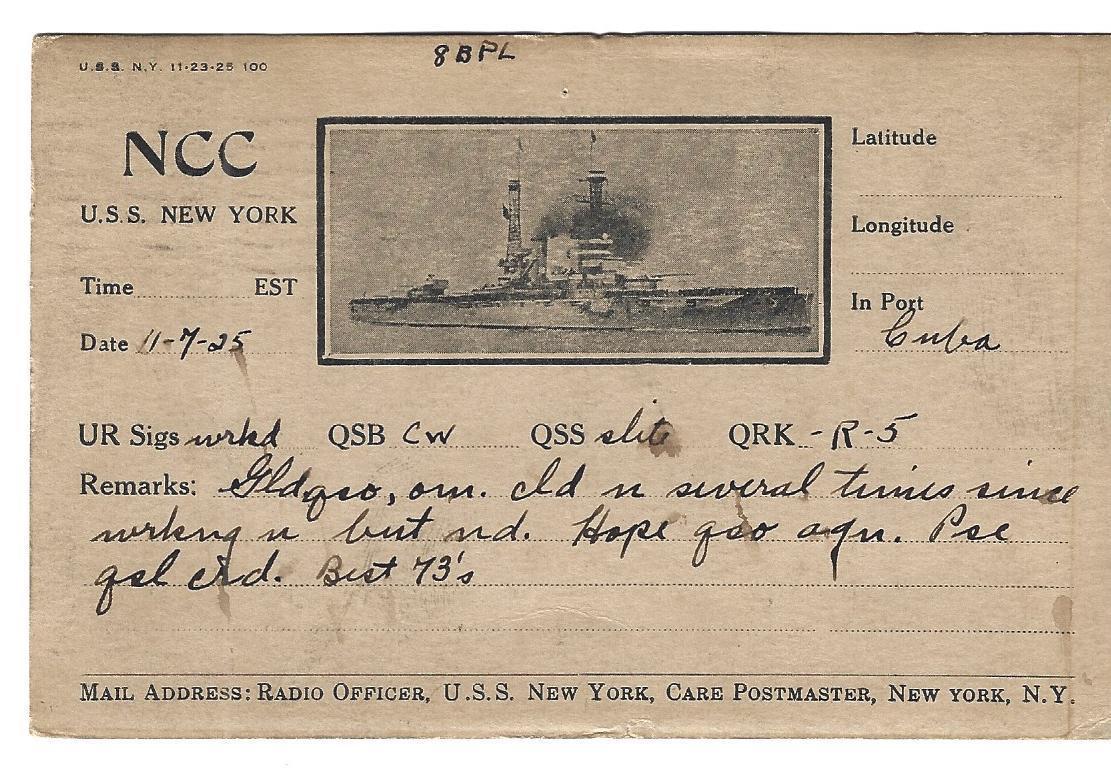 8BPL
U.S.S. N.Y. 11-23-25 100
NCC
U.S.S. NEW YORK
Time EST
Date 11-7-25
Latitude
Longitude
In Port
Cuba
UR Sigs wrkd QSB CW QSS slite QRK -R-5
Remarks: Gld qso, om. cld n several times since
wrkng n but nd. Hope qso agn. Pse
qsl crd. Best 73's
MAIL ADDRESS: RADIO OFFICER, U.S.S. NEW YORK, CARE POSTMASTER, NEW YORK, N.Y.